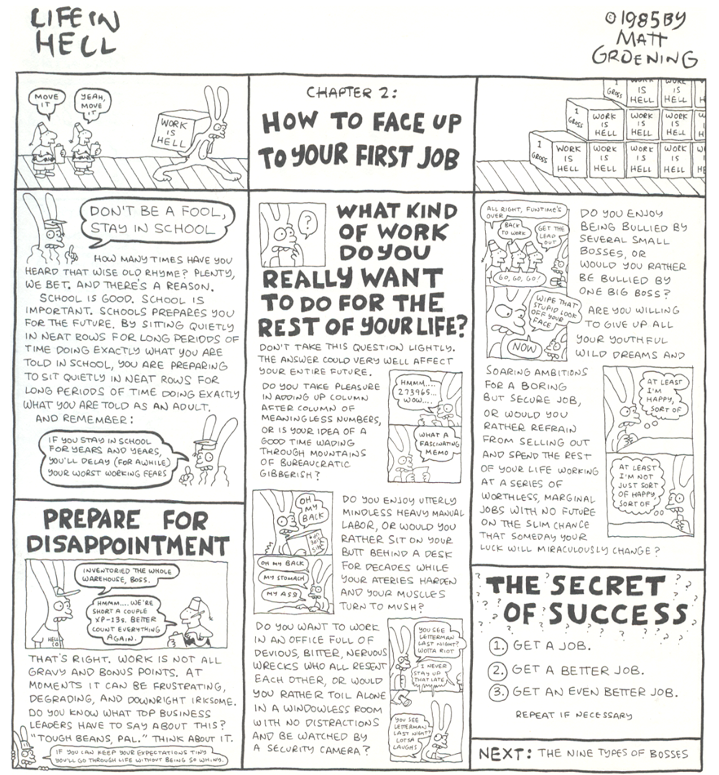 LIFE IN
HELL
©1985 BY
MATT
GROENING
MOVE
IT
YEAH,
MOVE
IT
WORK
IS
HELL
CHAPTER 2:
HOW TO FACE UP
TO YOUR FIRST JOB
1
GROSS
WORK
IS
HELL
WORK
IS
HELL
1
GROSS
WORK
IS
HELL
WORK
IS
HELL
WORK
IS
HELL
1
GROSS
WORK
IS
HELL
WORK
IS
HELL
WORK
IS
HELL
WORK
IS
HELL
DON'T BE A FOOL,
STAY IN SCHOOL
HOW MANY TIMES HAVE YOU
HEARD THAT WISE OLD RHYME? PLENTY,
WE BET. AND THERE'S A REASON.
SCHOOL IS GOOD. SCHOOL IS
IMPORTANT. SCHOOLS PREPARES YOU
FOR THE FUTURE. BY SITTING QUIETLY
IN NEAT ROWS FOR LONG PERIODS OF
TIME DOING EXACTLY WHAT YOU ARE
TOLD IN SCHOOL, YOU ARE PREPARING
TO SIT QUIETLY IN NEAT ROWS FOR
LONG PERIODS OF TIME DOING EXACTLY
WHAT YOU ARE TOLD AS AN ADULT.
AND REMEMBER:
IF YOU STAY IN SCHOOL
FOR YEARS AND YEARS,
YOU'LL DELAY (FOR AWHILE)
YOUR WORST WORKING FEARS
PREPARE FOR
DISAPPOINTMENT
INVENTORIED THE WHOLE
WAREHOUSE, BOSS.
HMMM.... WE'RE
SHORT A COUPLE
XP-13s. BETTER
COUNT EVERYTHING
AGAIN.
THAT'S RIGHT. WORK IS NOT ALL
GRAVY AND BONUS POINTS. AT
MOMENTS IT CAN BE FRUSTRATING,
DEGRADING, AND DOWNRIGHT IRKSOME.
DO YOU KNOW WHAT TOP BUSINESS
LEADERS HAVE TO SAY ABOUT THIS?
"TOUGH BEANS, PAL." THINK ABOUT IT.
IF YOU CAN KEEP YOUR EXPECTATIONS TINY
YOU'LL GO THROUGH LIFE WITHOUT BEING SO WHINY.
?
WHAT KIND
OF WORK
DO YOU
REALLY WANT
TO DO FOR THE
REST OF YOUR LIFE?
DON'T TAKE THIS QUESTION LIGHTLY.
THE ANSWER COULD VERY WELL AFFECT
YOUR ENTIRE FUTURE.
DO YOU TAKE PLEASURE
IN ADDING UP COLUMN
AFTER COLUMN OF
MEANINGLESS NUMBERS,
OR IS YOUR IDEA OF A
GOOD TIME WADING
THROUGH MOUNTAINS
OF BUREAUCRATIC
GIBBERISH?
HMMM....
273965...
WOW....
WHAT A
FASCINATING
MEMO
OH
MY
BACK
OH MY BACK
MY STOMACH
MY ASS
DO YOU ENJOY UTTERLY
MINDLESS HEAVY MANUAL
LABOR, OR WOULD YOU
RATHER SIT ON YOUR
BUTT BEHIND A DESK
FOR DECADES WHILE
YOUR ATERIES HARDEN
AND YOUR MUSCLES
TURN TO MUSH?
DO YOU WANT TO WORK
IN AN OFFICE FULL OF
DEVIOUS, BITTER, NERVOUS
WRECKS WHO ALL RESENT
EACH OTHER, OR WOULD
YOU RATHER TOIL ALONE
IN A WINDOWLESS ROOM
WITH NO DISTRACTIONS
AND BE WATCHED BY
A SECURITY CAMERA?
YOU SEE
LETTERMAN
LAST NIGHT?
WOTTA RIOT
I NEVER
STAY UP
THAT LATE
YOU SEE
LETTERMAN
LAST NIGHT?
LOTSA
LAUGHS
ALL RIGHT, FUNTIME'S
OVER
BACK
TO WORK
GET THE
LEAD
OUT
GO, GO, GO!
WIPE THAT
STUPID LOOK
OFF YOUR
FACE
NOW
DO YOU ENJOY
BEING BULLIED BY
SEVERAL SMALL
BOSSES, OR
WOULD YOU RATHER
BE BULLIED BY
ONE BIG BOSS?
ARE YOU WILLING
TO GIVE UP ALL
YOUR YOUTHFUL
WILD DREAMS AND
SOARING AMBITIONS
FOR A BORING
BUT SECURE JOB,
OR WOULD YOU
RATHER REFRAIN
FROM SELLING OUT
AND SPEND THE REST
OF YOUR LIFE WORKING
AT A SERIES OF
WORTHLESS, MARGINAL
JOBS WITH NO FUTURE
ON THE SLIM CHANCE
THAT SOMEDAY YOUR
LUCK WILL MIRACULOUSLY CHANGE?
AT LEAST
I'M
HAPPY,
SORT OF
AT LEAST
I'M NOT
JUST SORT
OF HAPPY,
SORT OF
THE SECRET
OF SUCCESS
1. GET A JOB.
2. GET A BETTER JOB.
3. GET AN EVEN BETTER JOB.
REPEAT IF NECESSARY
NEXT: THE NINE TYPES OF BOSSES